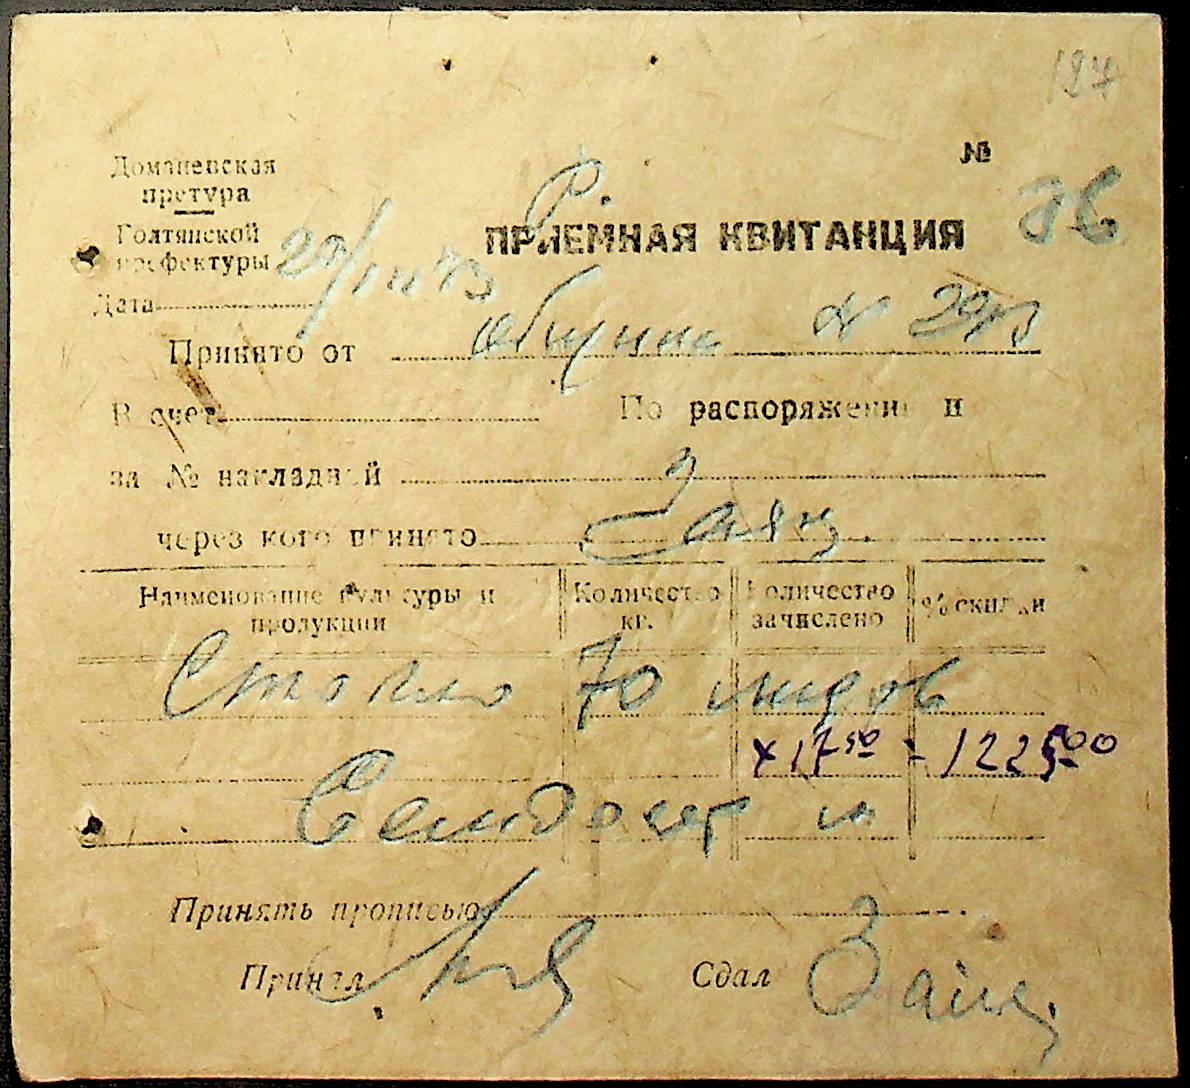 187
Доманевская
претура
Голтянской
префектуры
№ 36
Р.
ПРИЕМНАЯ КВИТАНЦИЯ
Дата 29/III 43
Принято от община №
В счет По распоряжени и
за № накладной
через кого принято Заяц.
Наименование культуры и продукции Количество кг. Количество зачислено % скидки
70 пудов
x 17 50 - 1225 00
Семдесят
Принять прописью
Принял Сдал Заяц